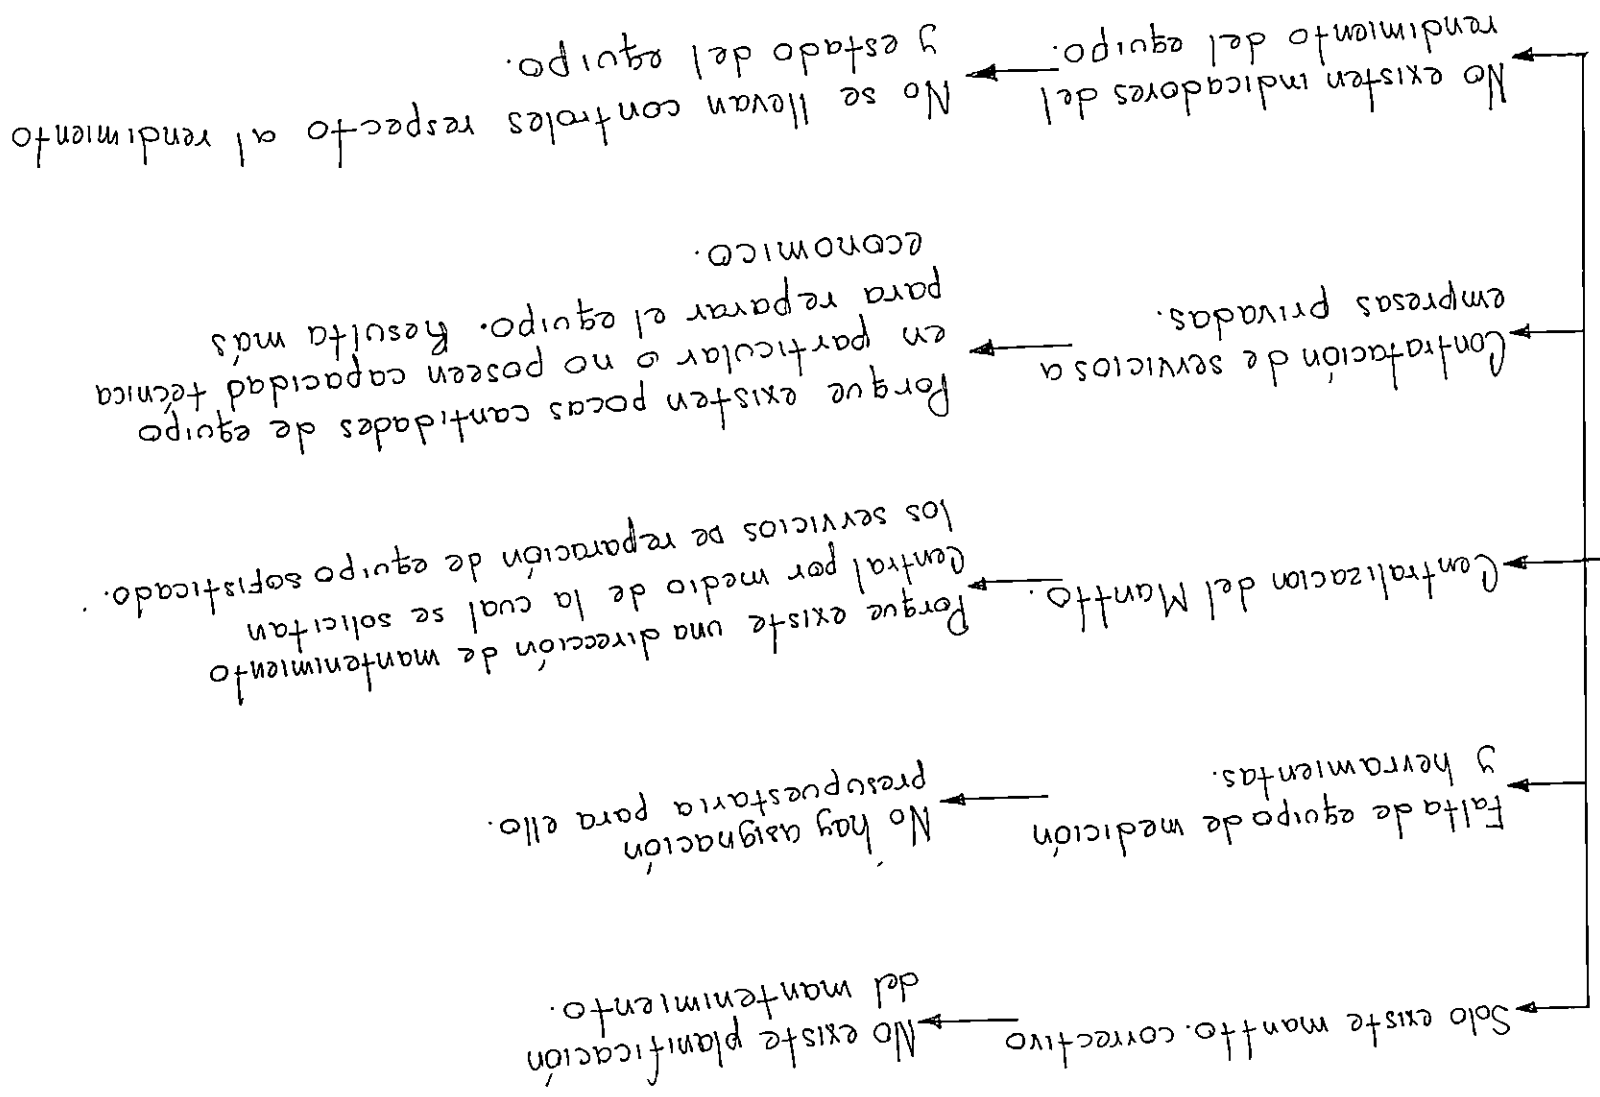 Solo existe mantto. correctivo
No existe planificación
del mantenimiento.
Falta de equipo de medición
y herramientas.
No hay asignación
presupuestaria para ello.
Centralizacion del Mantto.
Porque existe una dirección de mantenimiento
Central por medio de la cual se solicitan
los servicios DE reparación de equipo sofisticado.
Contratación de servicios a
empresas privadas.
Porque existen pocas cantidades de equipo
en particular o no poseen capacidad técnica
para reparar el equipo. Resulta más
economico.
No existen indicadores del
rendimiento del equipo.
No se llevan controles respecto al rendimiento
y estado del equipo.